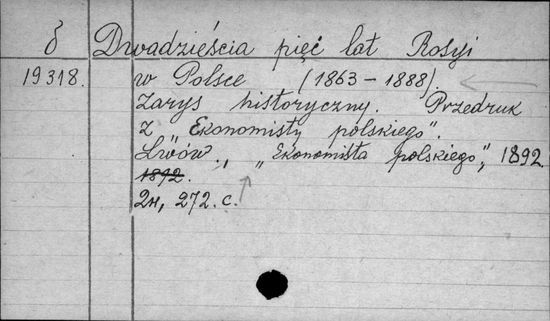 δ Dwadzieścia pięć lat Rosyi
19318. w Polsce (1863 – 1888).
Zarys historyczny. Przedruk
z "Ekonomisty polskiego".
Lwów, „Ekonomista polskiego”, 1892
1892.
2н, 272. с.